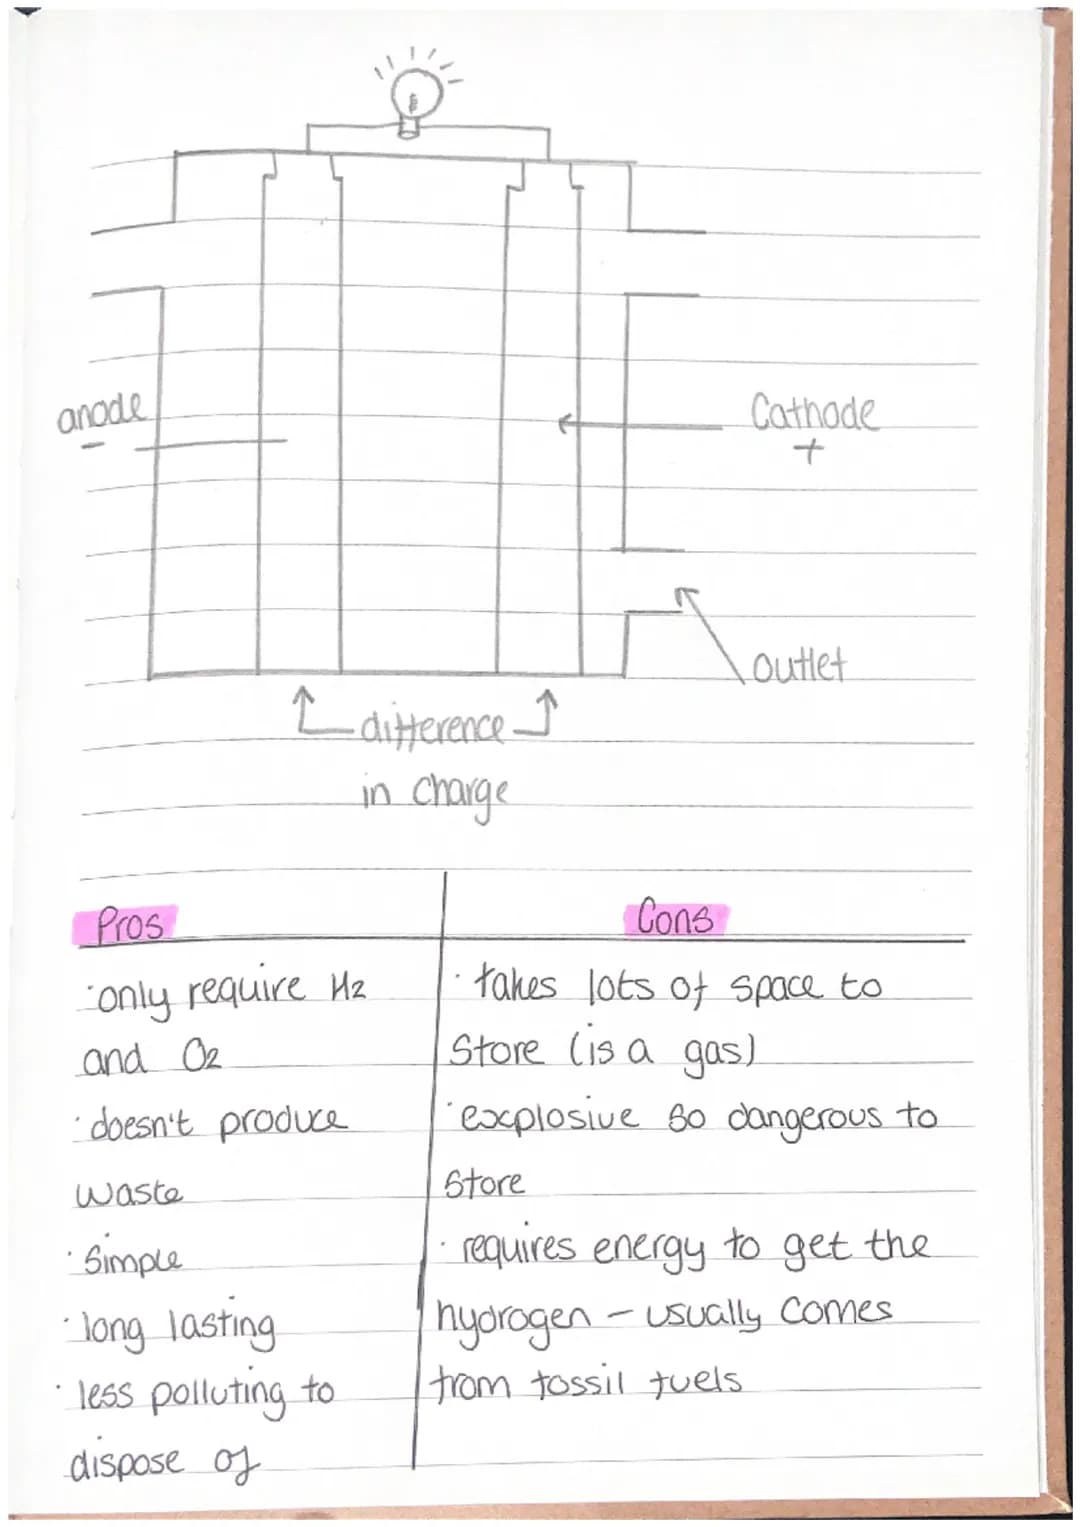 anode
-
Cathode
+
outlet
difference
in charge
Pros
·only require H2
and O2
·doesn't produce
waste
·Simple
·long lasting
·less polluting to
dispose of
Cons
·takes lots of space to
store (is a gas)
·explosive so dangerous to
store
·requires energy to get the
hydrogen - usually comes
from fossil fuels